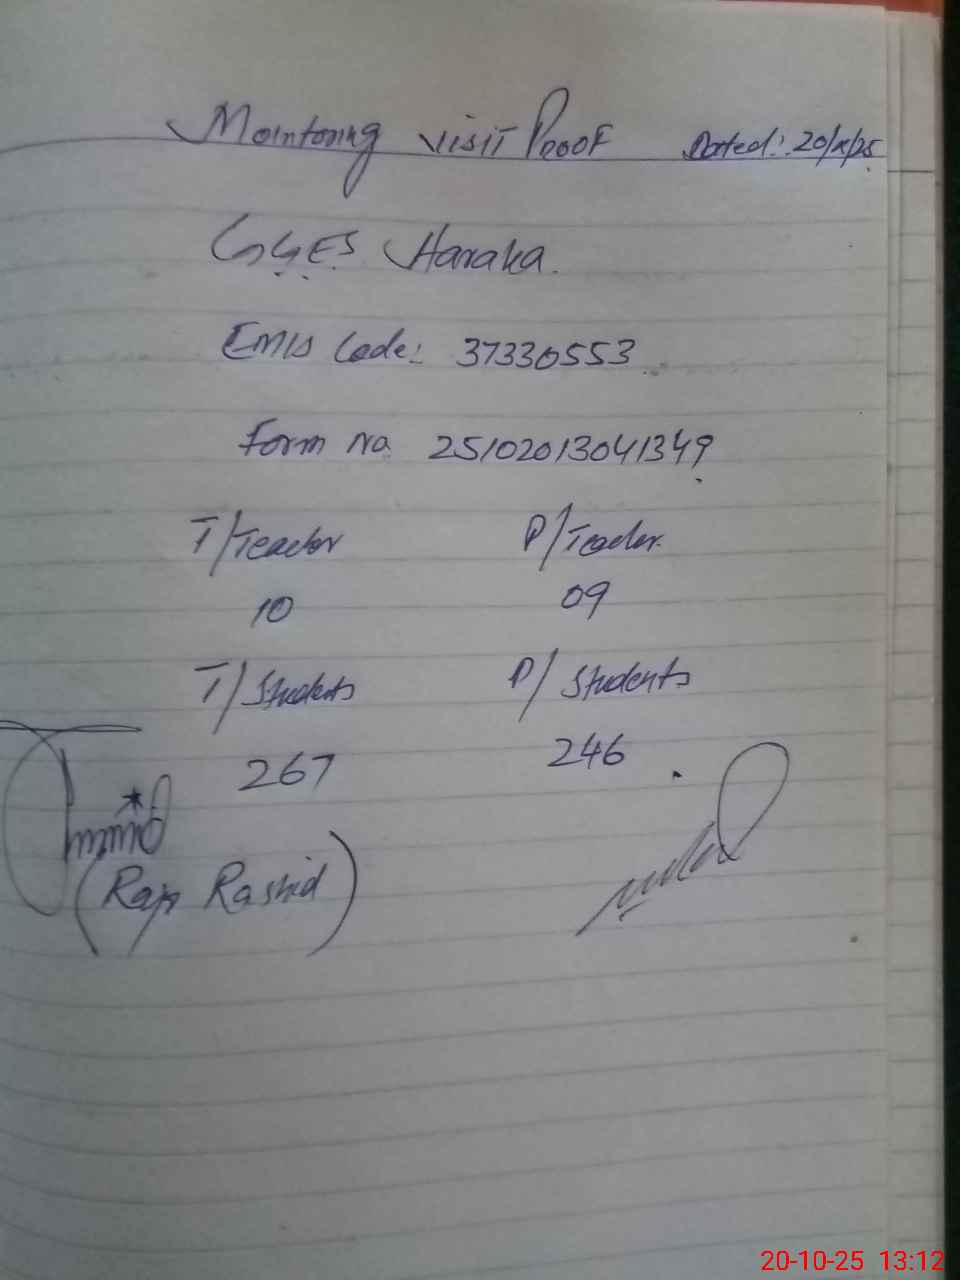 Monitoring visit Proof Dated: 20/x/25
GGES Haraka.
EMIS Code: 37330553
Form no 25102013041349
T/Teacher P/Teacher.
10 09
T/Students P/Students
267 246
(Raja Rashid)
20-10-25 13:12